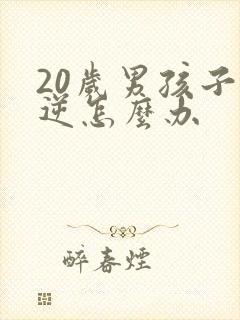 20歲男孩子
逆怎麼办
醉春煙